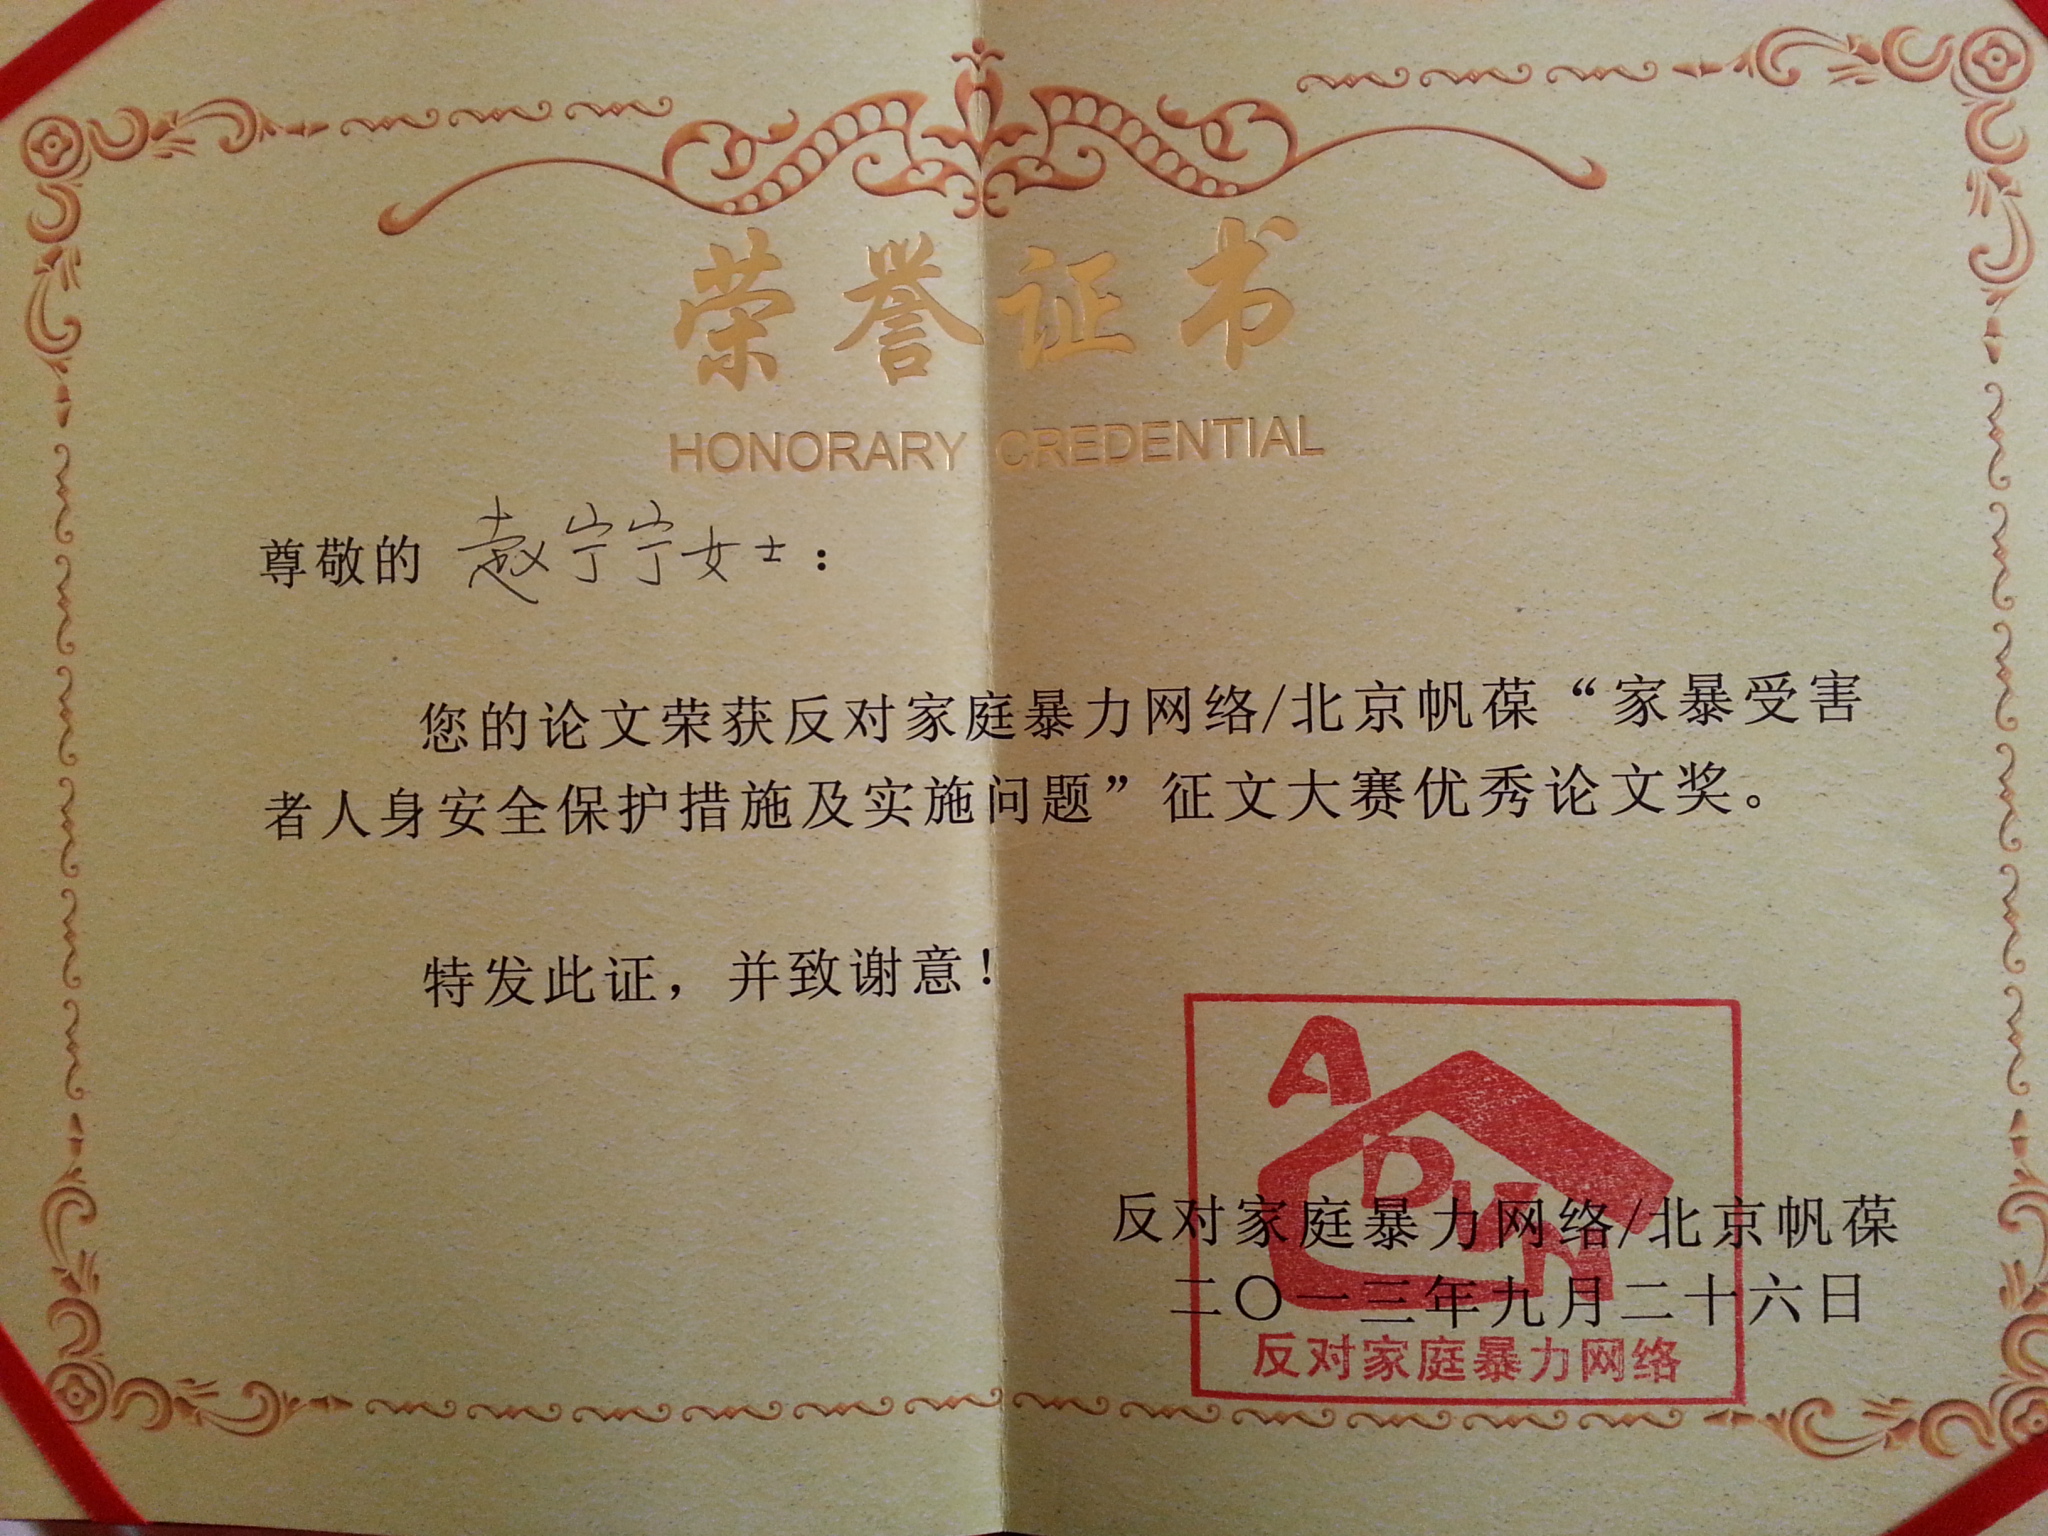 荣誉证书
HONORARY CREDENTIAL
尊敬的 赵宁宁女士：
您的论文荣获反对家庭暴力网络/北京帆葆“家暴受害
者人身安全保护措施及实施问题”征文大赛优秀论文奖。
特发此证，并致谢意！
ADVN
反对家庭暴力网络/北京帆葆
二〇一三年九月二十六日
反对家庭暴力网络